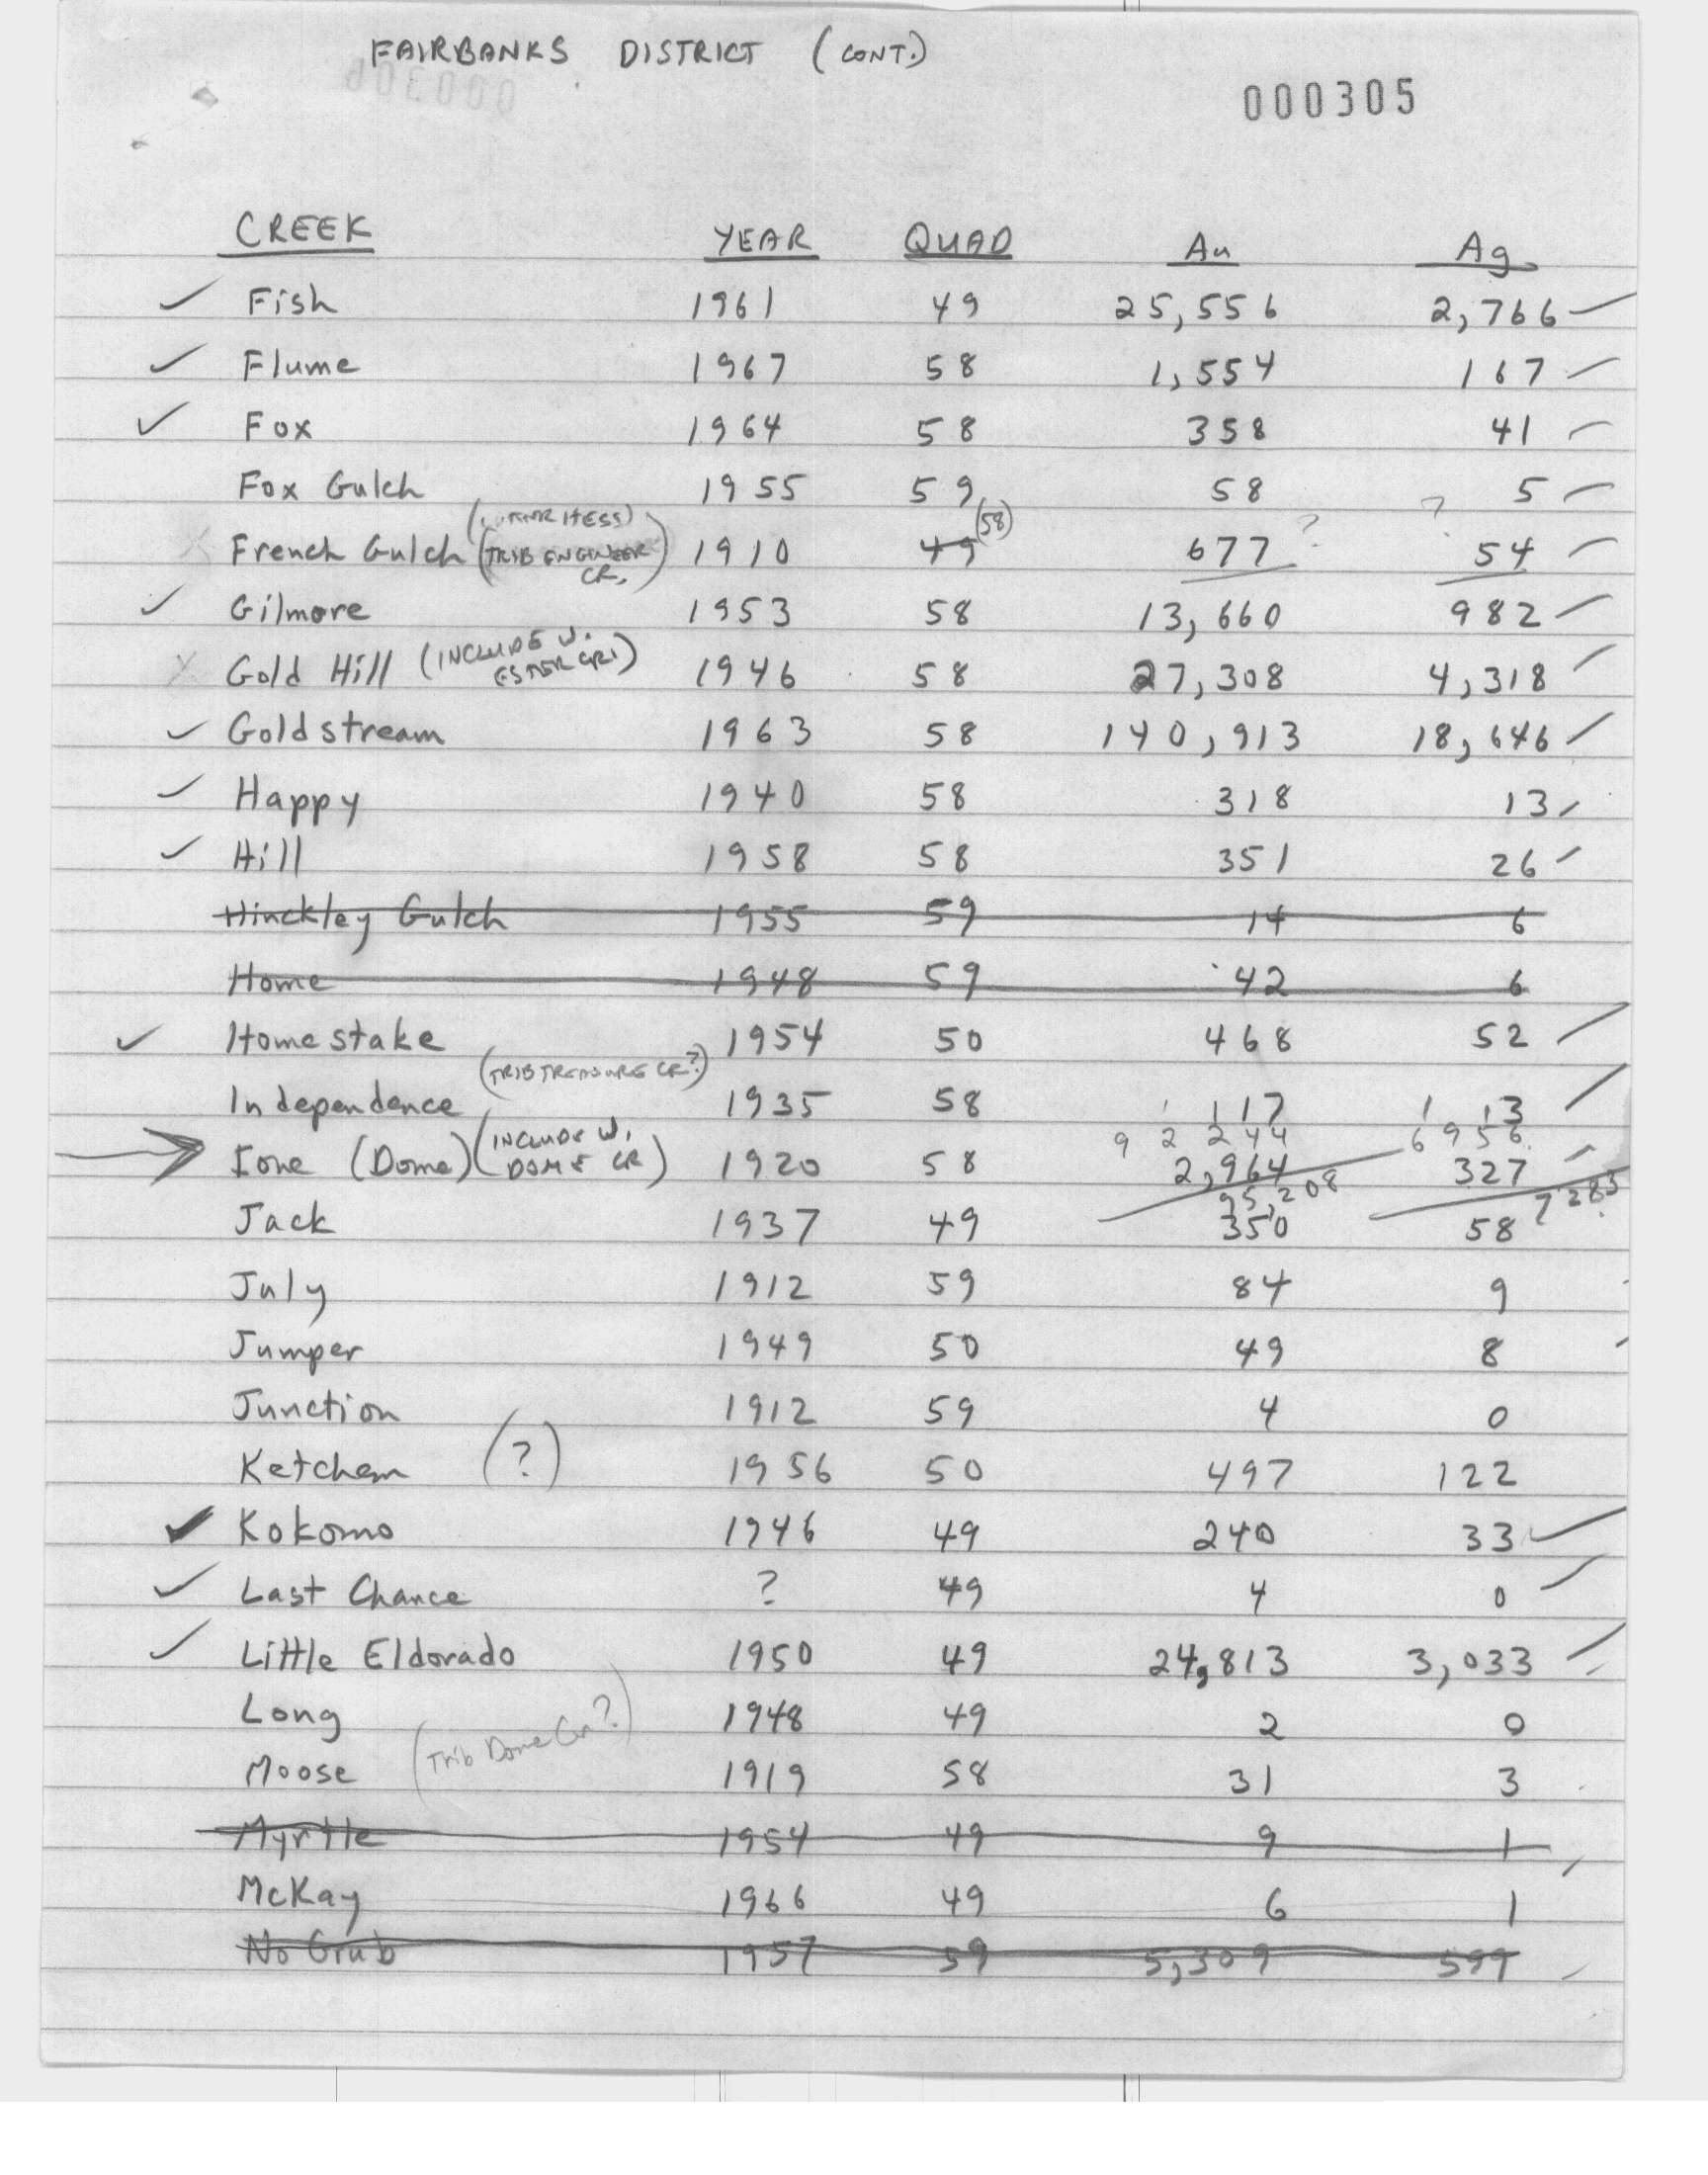 FAIRBANKS DISTRICT (CONT.)
000305
CREEK YEAR QUAD Au Ag
✓ Fish 1961 49 25,556 2,766
✓ Flume 1967 58 1,554 167
✓ Fox 1964 58 358 41
Fox Gulch 1955 59 58 5
HESS) (58) ? ?
X French Gulch (TRIB ENGINEER CR.) 1910 49 677 54
✓ Gilmore 1953 58 13,660 982
X Gold Hill (INCLUDE W. ESTER CR.) 1946 58 27,308 4,318
✓ Goldstream 1963 58 140,913 18,646
✓ Happy 1940 58 318 13
✓ Hill 1958 58 351 26
Hinckley Gulch 1955 59 14 6
Home 1948 59 42 6
✓ Homestake 1954 50 468 52
(TRIB TREASURE CR?)
Independence 1935 58 117 13
92244 6956
Ione (Dome) (INCLUDE W. DOME CR) 1920 58 2,964 327
95,208 7283
Jack 1937 49 350 58
July 1912 59 84 9
Jumper 1949 50 49 8
Junction 1912 59 4 0
Ketchem (?) 1956 50 497 122
✓ Kokomo 1946 49 240 33
✓ Last Chance ? 49 4 0
✓ Little Eldorado 1950 49 24,813 3,033
Long 1948 49 2 0
(Trib Dome Cr?)
Moose 1919 58 31 3
Myrtle 1954 49 9 1
McKay 1966 49 6 1
No Grub 1957 59 5,309 599